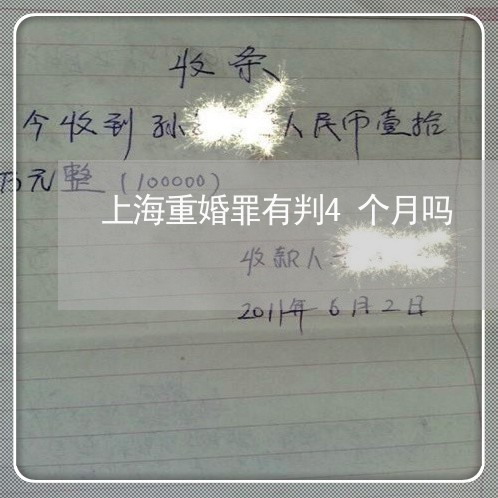 收条
今收到孙 人民币壹拾
万元整（100000）
上海重婚罪有判4 个月吗
收款人
2011年6月2日